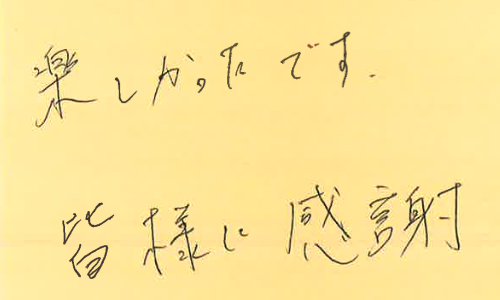 楽しかったです.
皆様に感謝